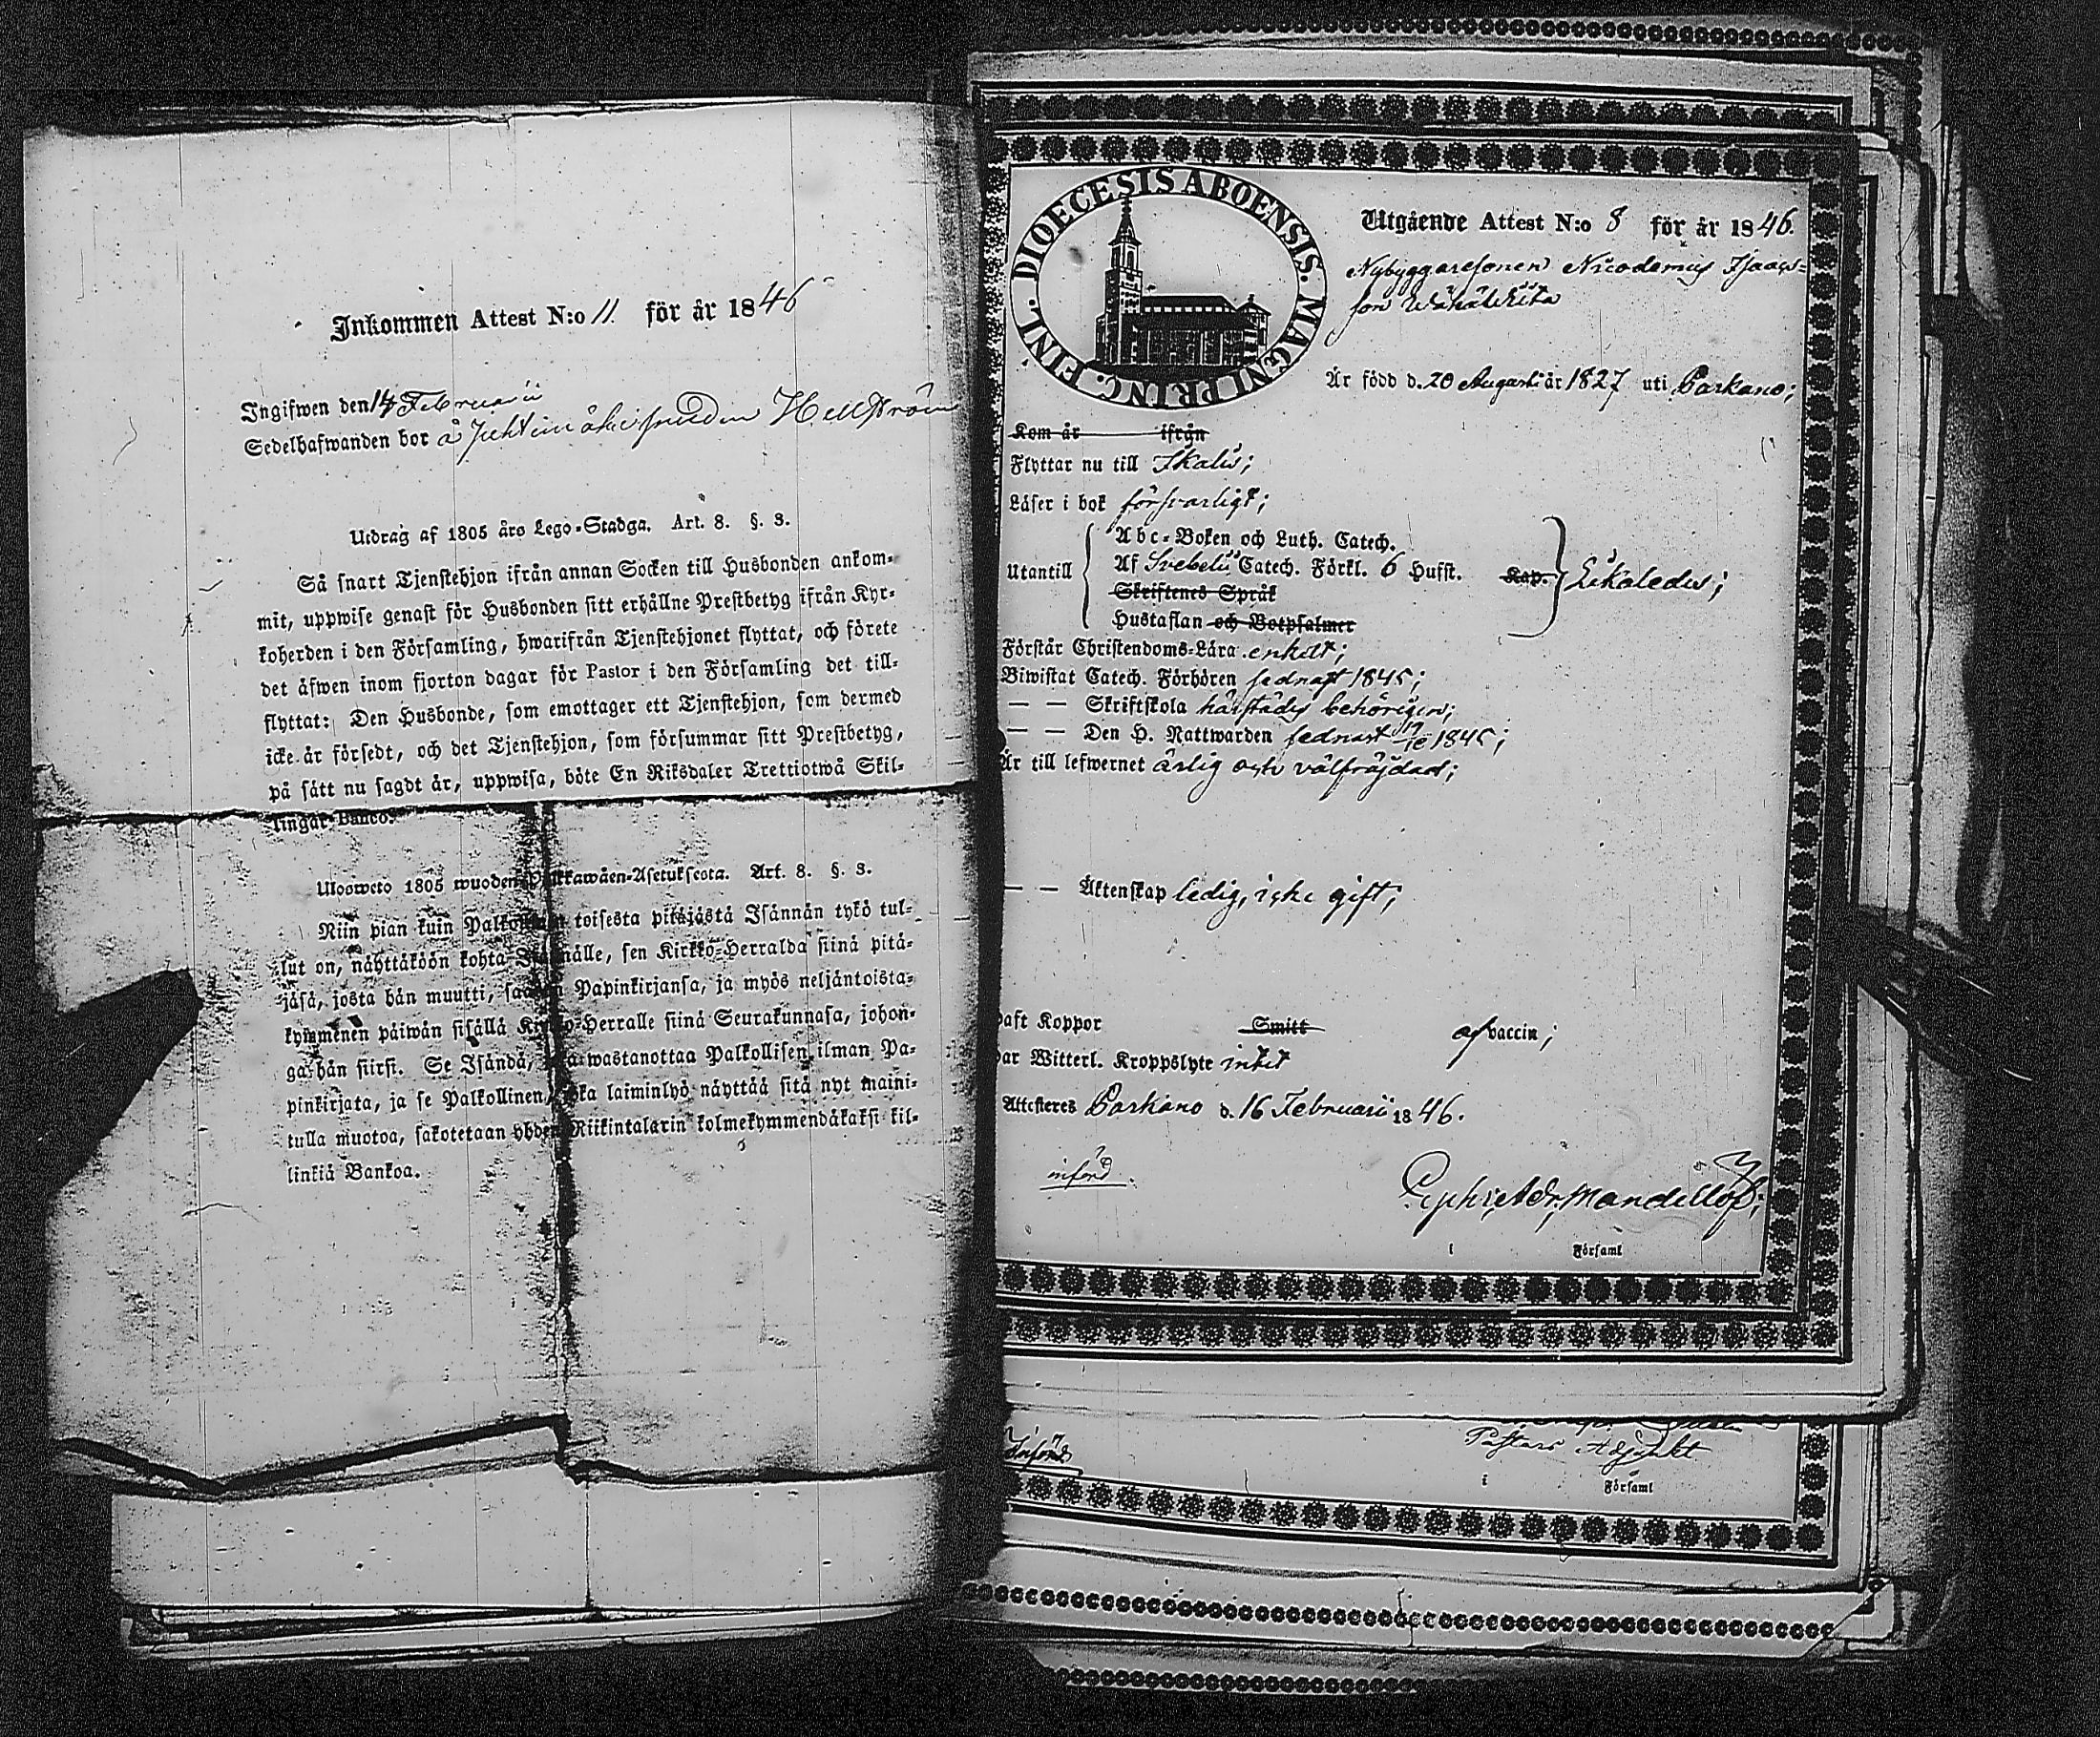 Inkommen Attest N:o 11. för år 1846
Ingifwen den 14 Februarii
Sedelhafwanden bor å
Utdrag af 1805 års Lego-Stadga. Art. 8. §. 3.
Så snart Tjenstehjon ifrån annan Socken till Husbonden ankom-
mit, uppwise genast för Husbonden sitt erhållne Prestbetyg ifrån Kyr-
koherden i den Församling, hwarifrån Tjenstehjonet flyttat, och förete
det äfwen inom fjorton dagar för Pastor i den Församling det till-
flyttat: Den Husbonde, som emottager ett Tjenstehjon, som dermed
icke är försedt, och det Tjenstehjon, som försummar sitt Prestbetyg,
på sätt nu sagdt är, uppwisa, böte En Riksdaler Trettiotwå Skil-
lingar Banco.
Ulosweto 1805 wuoden Palkkawäen-Asetuksesta. Art. 8. §. 3.
Niin pian kuin Palkollinen toisesta pitäjästä Isännän tykö tul-
lut on, näyttäköön kohta Isännälle, sen Kirkko-Herralda siinä pitä-
jäsä, josta hän muutti, saadun Papinkirjansa, ja myös neljäntoista-
kymmenen päiwän sisällä Kirkko-Herralle siinä Seurakunnasa, johon-
ga hän siirsi. Se Isändä, joka wastanottaa Palkollisen ilman Pa-
pinkirjata, ja se Palkollinen, joka laiminlyö näyttää sitä nyt maini-
tulla muotoa, sakotetaan yhden Riikintalarin kolmekymmendäkaksi kil-
linkiä Bankoa.
FINL. DIOECESIS ABOENSIS. MAGNI PRINC.
Utgående Attest N:o 8 för år 1846.
Nybyggaresonen Nicodemus Isaacs-
son
Är född d. 20 Augusti år 1827 uti Parkano;
Kom år ifrån
Flyttar nu till Ikalis;
Läser i bok försvarligt;
Abc-Boken och Luth. Catech.
Utantill Af Svebelii Catech. Förkl. 6 Hufst. Kap. Likaledes;
Skriftenes Språk
Hustaflan och Botpsalmer
Förstår Christendoms-Lära enkelt;
Biwistat Catech. Förhören sednast 1845;
— — Skriftskola härstädes behörigen;
— — Den H. Nattwarden sednast 1845;
Är till lefwernet ärlig och välfräjdad;
— — Äktenskap ledig, icke gift;
haft Koppor Smitt af vaccin;
har Witterl. Kroppslyte intet
Attesteras Parkano d. 16 Februarii 1846.
införd.
Zeph: Adr: Mandellöf;
i Församl
Införd
Pastors Adjunkt
i Församl